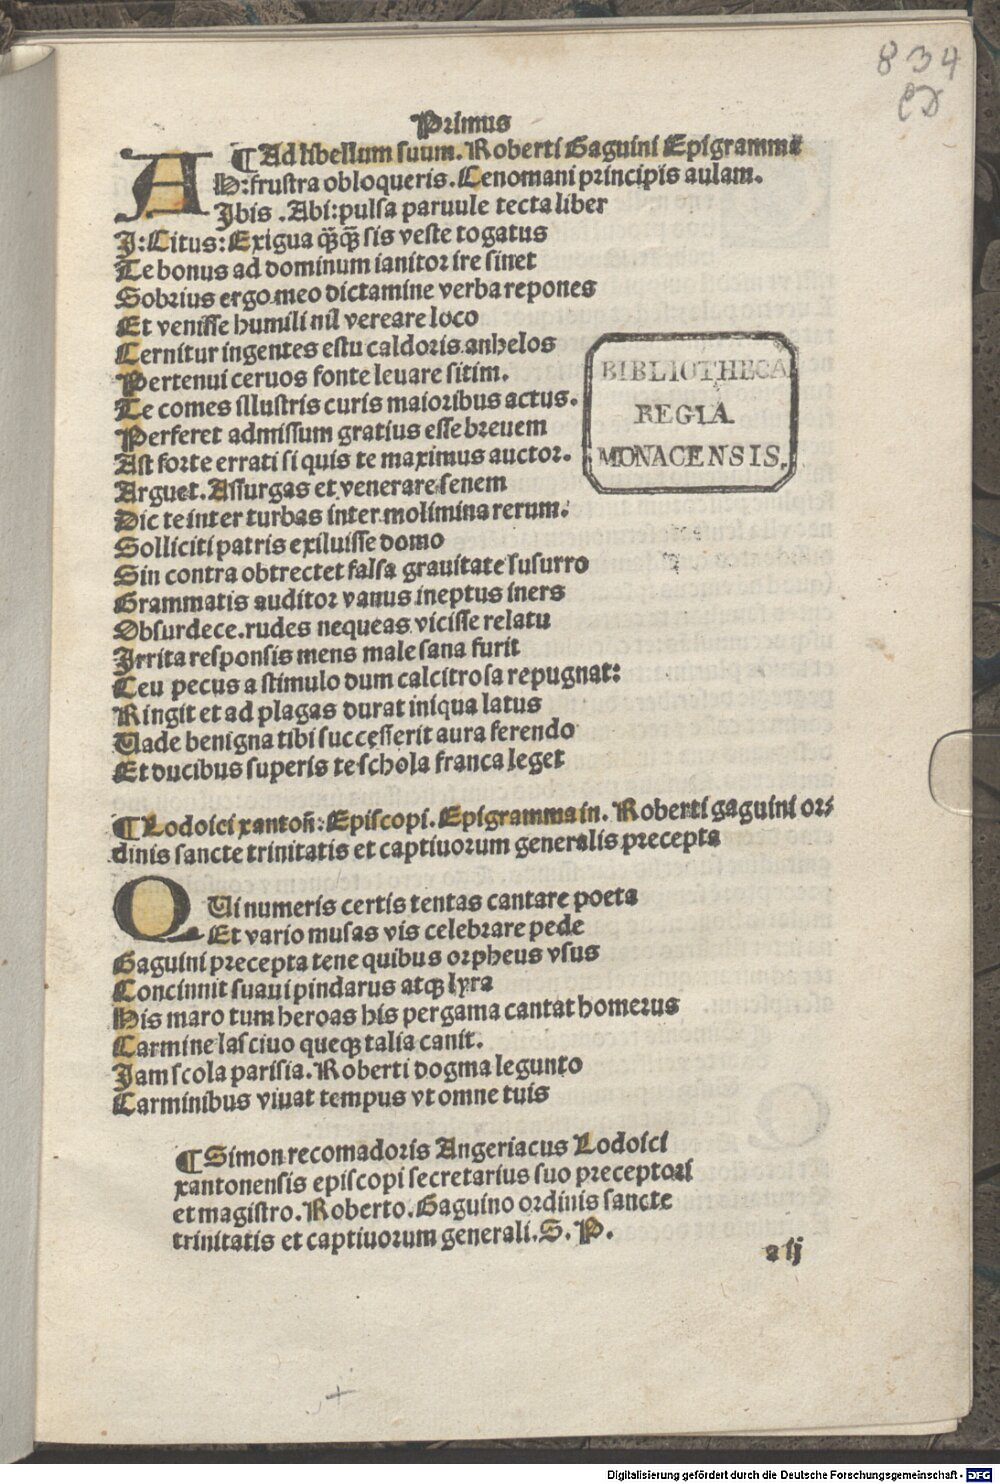 834
Primus
¶ Ad libellum suum. Roberti Gaguini Epigramma
AH: frustra obloqueris. Cenomani principis aulam.
Ibis. Abi: pulsa paruule tecta liber
I: Citus: Exigua qȝ̄qȝ̄ sis veste togatus
Te bonus ad dominum ianitor ire sinet
Sobrius ergo meo dictamine verba repones
Et venisse humili nil vereare loco
Cernitur ingentes estu caldoris anhelos
Pertenui ceruos fonte leuare sitim.
Te comes illustris curis maioribus actus.
Perferet admissum gratius esse breuem
Ast forte errati si quis te maximus auctor.
Arguet. Assurgas et venerare senem
Dic te inter turbas inter molimina rerum.
Solliciti patris exiluisse domo
Sin contra obtrectet falsa grauitate susurro
Grammatis auditor vanus ineptus iners
Obsurdece. rudes nequeas vicisse relatu
Irrita responsis mens male sana furit
Ceu pecus a stimulo dum calcitrosa repugnat:
Ringit et ad plagas durat iniqua latus
Uade benigna tibi successerit aura ferendo
Et ducibus superis te schola franca leget
¶ Lodoici xantoñ: Episcopi. Epigramma in. Roberti gaguini or⸗
dinis sancte trinitatis et captiuorum generalis precepta
QUi numeris certis tentas cantare poeta
Et vario musas vis celebrare pede
Gaguini precepta tene quibus orpheus vsus
Concinnit suaui pindarus atqȝ lyra
His maro tum heroas his pergama cantat homerus
Carmine lasciuo queqȝ talia canit.
Iam scola parisia. Roberti dogma legunto
Carminibus viuat tempus vt omne tuis
¶ Simon recomadoris Angeriacus Lodoici
xantonensis episcopi secretarius suo preceptori
et magistro. Roberto. Gaguino ordinis sancte
trinitatis et captiuorum generali. S. P.
a ij
BIBLIOTHECA
REGIA
MONACENSIS.
Digitalisierung gefördert durch die Deutsche Forschungsgemeinschaft - DFG